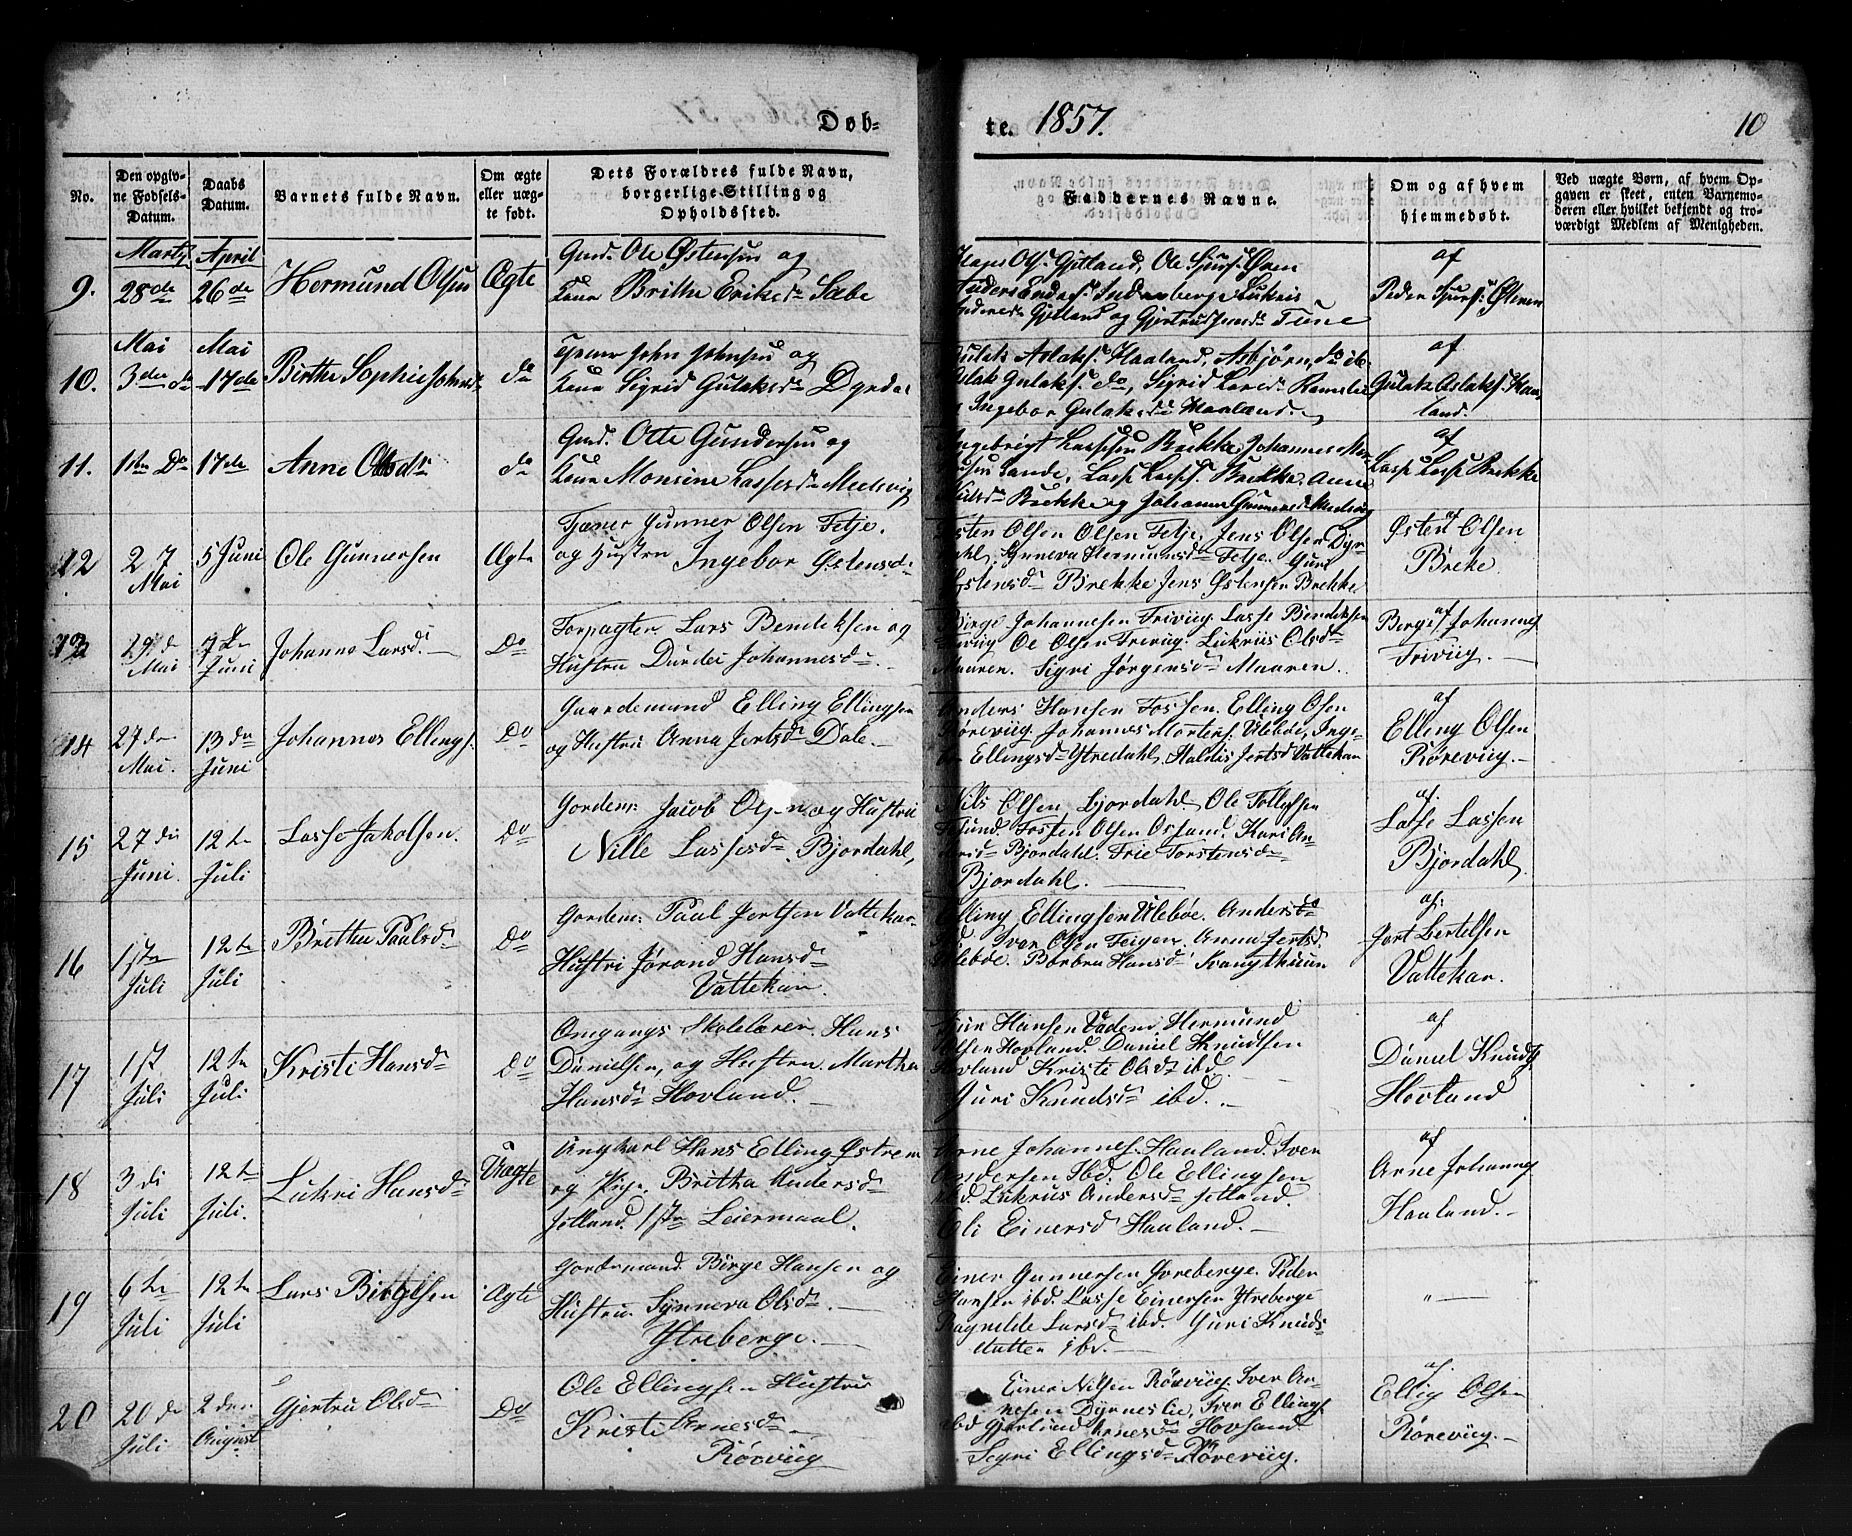 Døb-
te. 1857.
10
No.
Den opgiv-
ne Fødsels-
Datum.
Daabs
Datum.
Barnets fulde Navn.
Om ægte
eller uæg-
te født.
Dets Forældres fulde Navn,
borgerlige Stilling og
Opholdssted.
Faddernes Navne.
Om og af hvem
hjemmedøbt.
Ved uægte Børn, af hvem Op-
gaven er skeet, enten Barnemo-
deren eller hvilket bekjendt og tro-
værdigt Medlem af Menigheden.
9.
Marts
28de
April
26de
Hermund Olsen
Ægte
Gmd. Ole Østensen og
Kone Brithe Eriksdr Sæbø
Hans Ols. Gjitland, Ole Sjurs.
Anders Endes. Indreberge Lukris
Andersdr Gjitland og Gjertrud Tune
af
Peder Sjurs.
10.
Mai
3die do
Mai
17de
Birthe Sophie Johnsdr
do
Tjener John Johnsen og
Kone Sigrid Gulaksdr Dyrdal
Gulak Aslaks. Haaland, Asbjørn do ib.
Aslak Gulaks. do, Sigrid Larsdr
Ingebor Gulaksdr Haaland
af
Gulak Aslaks. Haa-
land.
11.
1ste Do
17de
Anne Ottesdr
do
Gmd. Otte Gundersen og
Kone Monsine Lassesdr Medsvig
Ingebrigt Lassesen Brekke, Johannes
Sande, Lasse Lasses. Brekke, Anne
Nilsdr Brekke og Johanne Gunnersdr Medsvig
af
Lasse Lasses Brekke
12
27
Mai
5 Juni
Ole Gunnersen
Ægte
Tjæner Gunner Olsen Fetje.
og Hustru Ingebor Østensdr
Østen Olsen Olsen Fetje, Jens Olsen Dyr-
dahl, Synneva Hermunsdr Fetje. Guri
Østensdr Brekke Jens Østensen Brekke
af
Østen Olsen
Breke.
13
29de
Mai
7de
Juni
Johanne Larsdr
Do
Forpagter Lars Bendiksen og
Hustru Durdei Johannesdr
Birge Johannesen Trivug. Lasse Bendiksen
Trivug Ole Olsen Trevug. Lukriis Olsdr
Mauren. Sigri Jørgensdr Mauren.
af
Berge Johannes
Trivug.
14
27de
Mai.
13de
Juni
Johannes Ellings.
Do
Gaardemand Elling Ellingsen
og Hustru Anna Jertsdr Dale.
Anders Hansen Fossen. Elling Olsen
Rørevug. Johannes Mortens. Ulebøe, Inge-
Ellingsdr Ytredahl. Haldis Jertsdr Vattekar
af
Elling Olsen
Rørevug.
15
27di
Juni.
12te
Juli
Lasse Jakobsen.
Do
Gordem: Jacob Olsen og Hustru
Nille Lassesdr. Bjordahl,
Nils Olsen Bjordahl, Ole Tollefsen
Tosten Olsen Osland. Kari An-
dersdr Bjordahl. Frie Torstensdr
Bjordahl.
af.
Lasse Lassen
Bjordahl,
16
1ste
Juli
12te
Juli
Brithe Paulsdr
Do
Gordem: Paul Jertsen Vattekar
Hustri Jørand Hansdr
Vattekar.
Elling Ellingsen Ulebøe. Anders do
ibd. Iver Olsen Feigen. Anna Jertsd.
Ulebøe. Børbra Hansdr Svangthuun
af.
Jort Bertelsen
Vattekar.
17
1st
Juli
12te
Juli
Kristi Hansdr
Do
Omgangs Skolelærer. Hans
Danielsen, og Hustru. Martha
Hansdr Hovland.
Sjur Hansen Vadem, Hermund
Olsen Hovland. Daniel Knudtsen
Hovland Kristi Olsdr ibd.
Juri Knudsdr ibd.
af
Daniel Knuds
Hovland
18
3di
Juli
12te
Juli.
Lukri Hansdr
Uægte
Ungkarl Hans Elling. Østrem
og Pige. Britha Andersdr
Jitland. 1ste Leiermaal.
Arne Johannes. Haaland. Iver
Andersen Ibd. Ole Ellingsen
ibd. Lukrus Andersdr Jitland.
Oli Einersd Haaland.
af
Arne Johannes
Haaland.
19
6te
Juli
12te
Juli
Lars Birgesen
Ægte
Gordemand. Birge Hansen og
Hustru. Synneva Olsdr.
Ytreberge.
Einer Gunnersen Øvreberge. Peder
Hansen ibd. Lasse Einersen Ytreberge
Ragnilde Larsdr ibd. Juri Knuds-
datter ibd.
"
20
20de
Juli
2den
August
Gjertru Olsdr
Do
Ole Ellingsen Hustru
Kristi Arnesdr.
Rørvug
Einer Nilsen Rørvug, Iver Ar-
nesen Dyrneslie, Iver Ellings.
ibd Gjerlaud Arnesdr Hovland
Segri Ellingsdr Rørevug.
af.
Ellig Olsen
Rørevug.